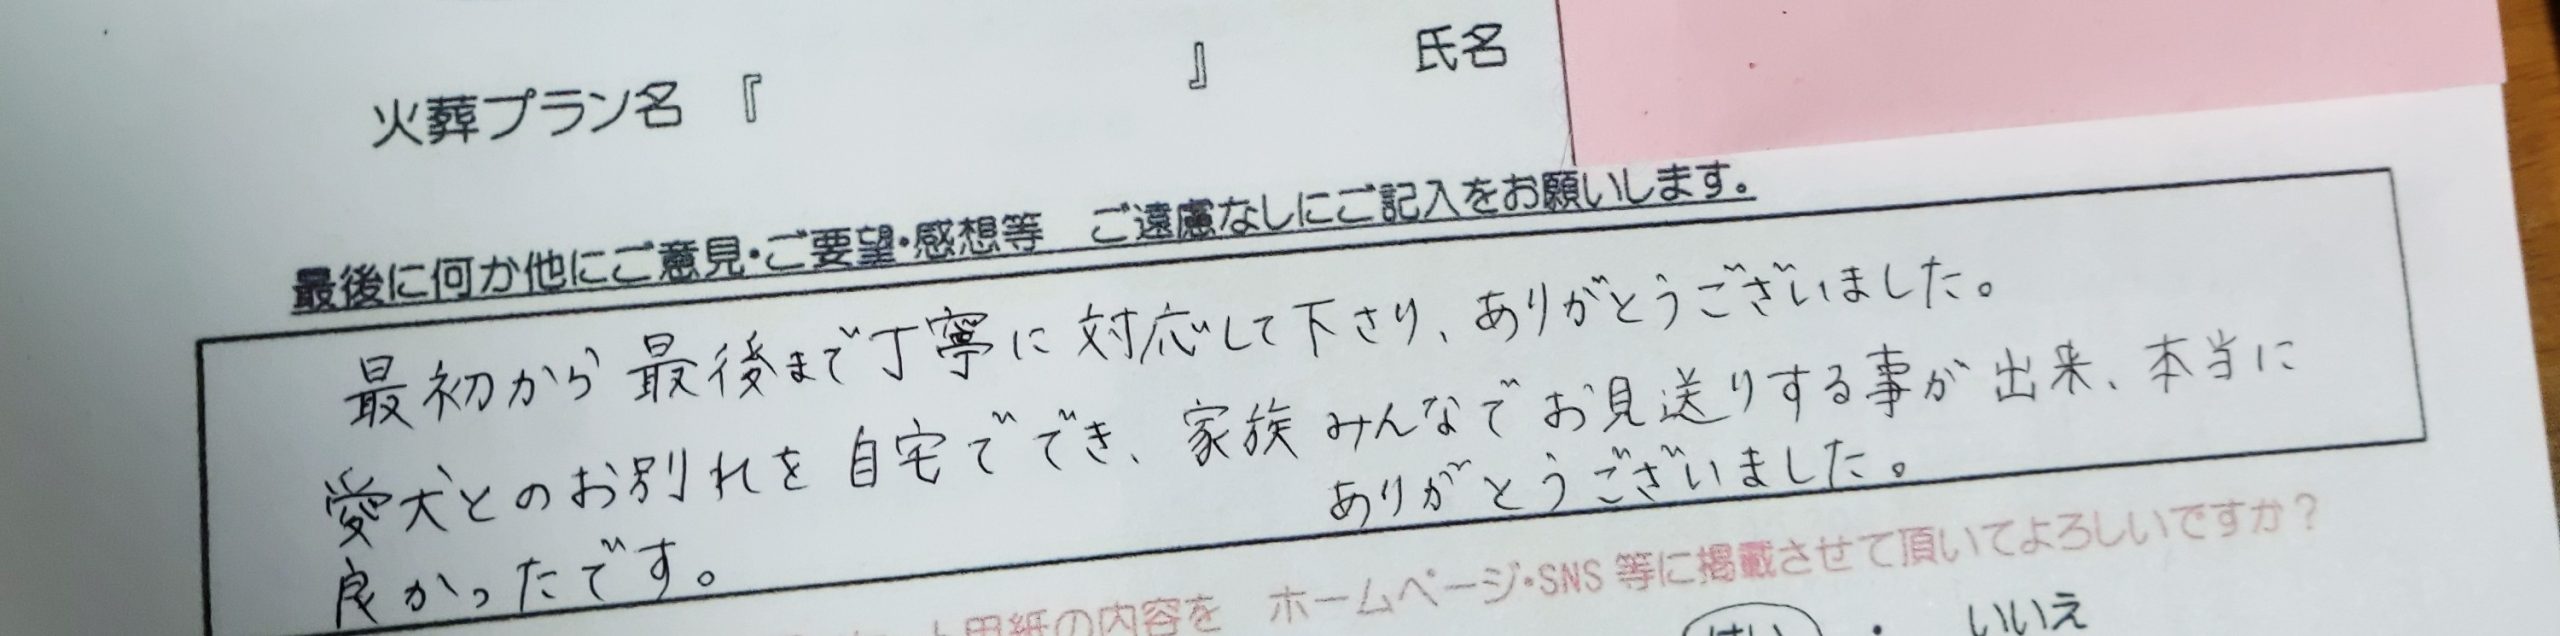 火葬プラン名 『 』 氏名
最後に何か他にご意見・ご要望・感想等 ご遠慮なしにご記入をお願いします。
最初から最後まで丁寧に対応して下さり、ありがとうございました。
愛犬とのお別れを自宅でき、家族みんなでお見送りする事が出来、本当に
良かったです。
ありがとうございました。
用紙の内容を ホームページ・SNS等に掲載させて頂いてよろしいですか？
はい ・ いいえ